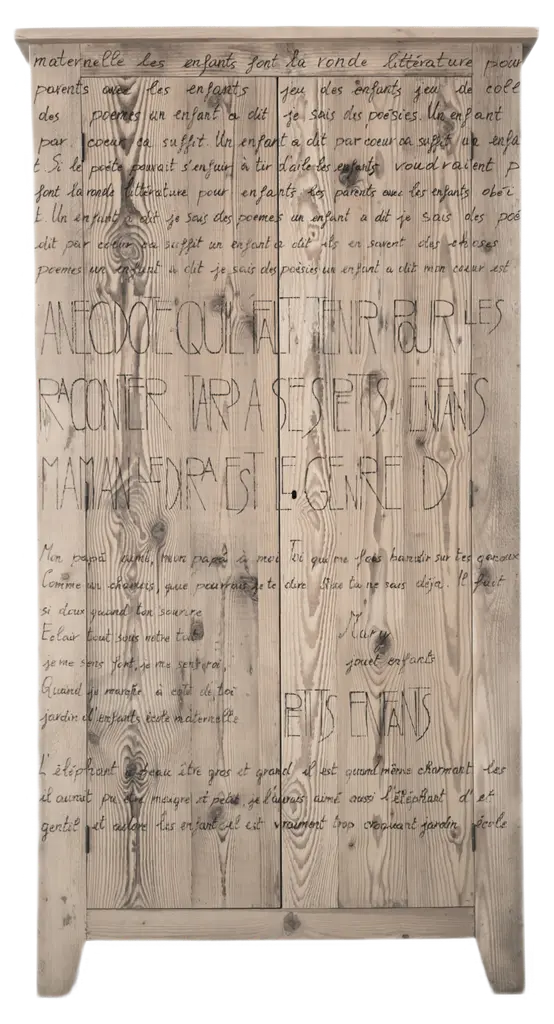 maternelle les enfants font la ronde littérature pour
parents avec les enfants jeu des enfants jeu de coll
des poemes un enfant a dit je sais des poésies. Un enfant
par coeur ca suffit. Un enfant a dit par coeur ca suffit un enfa
t. Si le poète pouvait s'enfuir à tir d'aile les enfants voudraient p
font la ronde littérature pour enfants les parents avec les enfants obéi
t. Un enfant a dit je sais des poemes un enfant a dit je sais des poé
dit par coeur ca suffit un enfant a dit ils en savent des choses
poemes un enfant a dit je sais des poésies un enfant a dit mon coeur est
ANECDOTE QU'IL FALT TENIR POUR LES
RACONTER TARD A SES PETITS ENFANTS
MAMAN REDIRA EST LE GENRE D'
Mon papa aimé, mon papa à moi Toi qui me fais bondir sur tes genoux
Comme un chamois, que pourrais je te dire Que tu ne sais déja. Il fait
si doux quand ton sourire
Eclair tout sous notre toit
je me sens fort, je me sens roi,
Quand je marche à coté de toi
jardin d'enfants école maternelle
Mary
jouet enfants
PETITS ENFANTS
L'éléphant a beau être gros et grand il est quand même charmant les
il aurait pu être maigre et petit, je l'aurais aimé aussi l'éléphant d' et
gentil et adore les enfants il est vraiment trop croquant jardin école